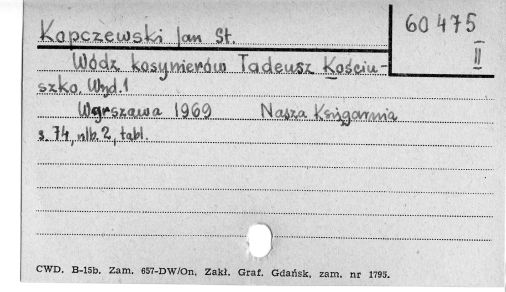 Kopczewski Jan St.
60 475
II
Wódz kosynierów Tadeusz Kościu-
szko. Wyd. 1
Warszawa 1969 Nasza Księgarnia
s. 74, nlb. 2, tabl.
CWD. B-15b. Zam. 657-DW/On. Zakł. Graf. Gdańsk, zam. nr 1795.